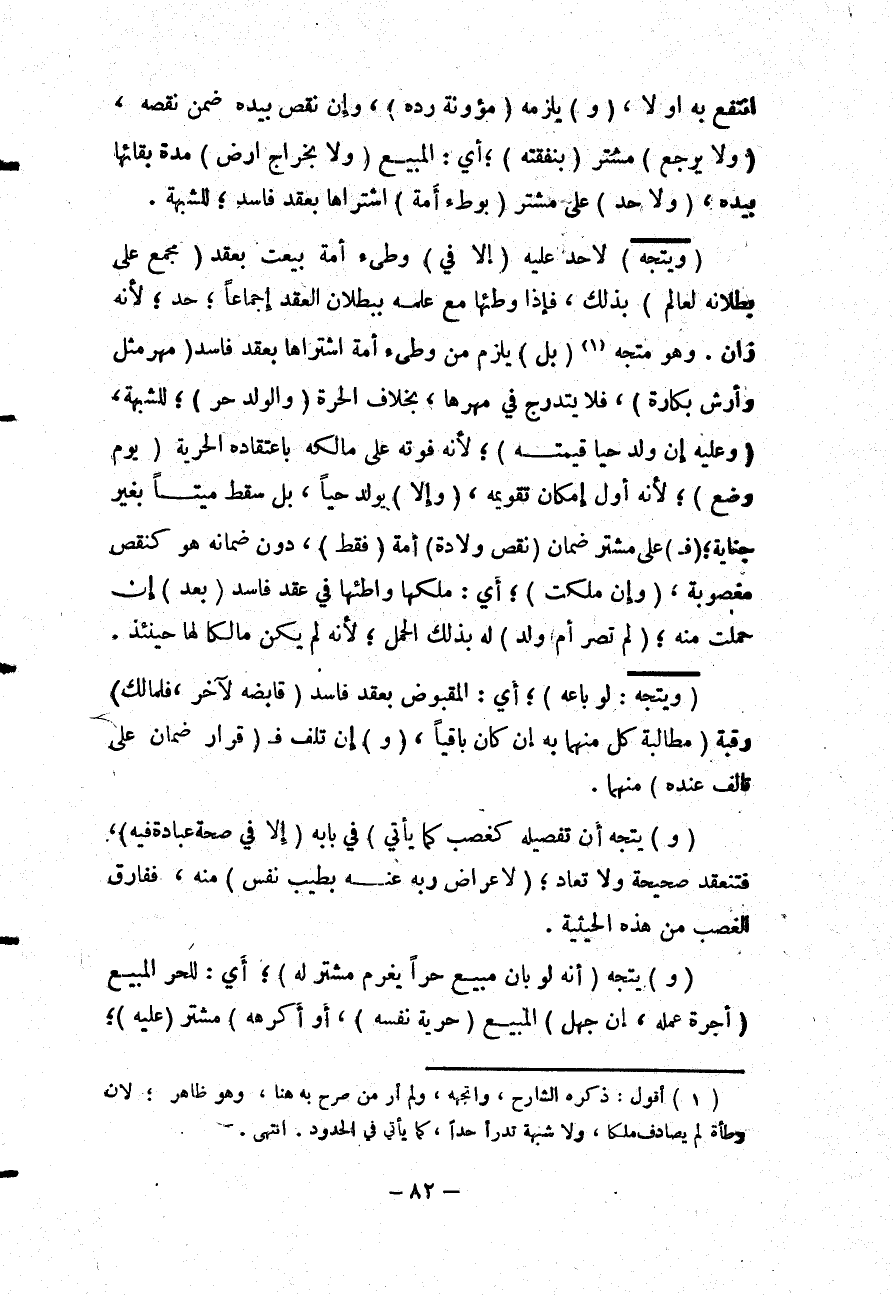 انتفع به او لا ، ( و ) يلزمه ( مؤونة رده ) ، وإن نقص بيده ضمن نقصه ،
( ولا يرجع ) مشتر ( بنفقته ) ؛ أي : المبيـع ( ولا بخراج ارض ) مدة بقائها
بيده ، ( ولا حد ) على مشتر ( بوطء أمة ) اشتراها بعقد فاسد ؛ للشبهة .
( ويتجه ) لاحد عليه ( إلا في ) وطىء أمة بيعت بعقد ( مجمع على
بطلانه لعالم ) بذلك ، فإذا وطئها مع علمـه ببطلان العقد إجماعاً ؛ حد ؛ لأنه
زان . وهو متجه (١) ( بل ) يلزم من وطىء أمة اشتراها بعقد فاسد ( مهر مثل
وأرش بكارة ) ، فلا يتدرج في مهرها ، بخلاف الحرة ( والولد حر ) ؛ للشبهة ،
( وعليه إن ولد حيا قيمتـــه ) ؛ لأنه فوته على مالكه باعتقاده الحرية ( يوم
وضع ) ؛ لأنه أول إمكان تقويمه ، ( وإلا ) يولد حياً ، بل سقط ميتــاً بغير
جناية ؛ ( فـ ) على مشتر ضمان ( نقص ولادة ) أمة ( فقط ) ، دون ضمانه هو كنقص
مغصوبة ، ( وإن ملكت ) ؛ أي : ملكها واطئها في عقد فاسد ( بعد ) إن
حملت منه ؛ ( لم تصر أم ولد ) له بذلك الحمل ؛ لأنه لم يكن مالكا لها حينئذ .
( ويتجه : لو باعه ) ؛ أي : المقبوض بعقد فاسد ( قابضه لآخر ، فلمالك )
رقبة ( مطالبة كل منهما به إن كان باقياً ، ( و ) إن تلف فـ ( قرار ضمان على
تالف عنده ) منهما .
( و ) يتجه أن تفصيله كغصب كما يأتي ) في بابه ( إلا في صحة عبادة فيه ) ،
فتنعقد صحيحة ولا تعاد ؛ ( لاعراض ربه عنـــه بطيب نفس ) منه ، ففارق
الغصب من هذه الحيثية .
( و ) يتجه ( أنه لو بان مبيـع حراً يغرم مشتر له ) ؛ أي : للحر المبيـع
( أجرة عمله ، ان جهل ) المبيـع ( حرية نفسه ) ، أو أكرهه ) مشتر ( عليه ) ؛
( ١ ) أقول : ذكره الشارح ، واتجهه ، ولم أر من صرح به هنا ، وهو ظاهر ؛ لان
وطأة لم يصادف ملكا ، ولا شبهة تدرأ حداً ، كما يأتي في الحدود . انتهى .
– ٨٢ –